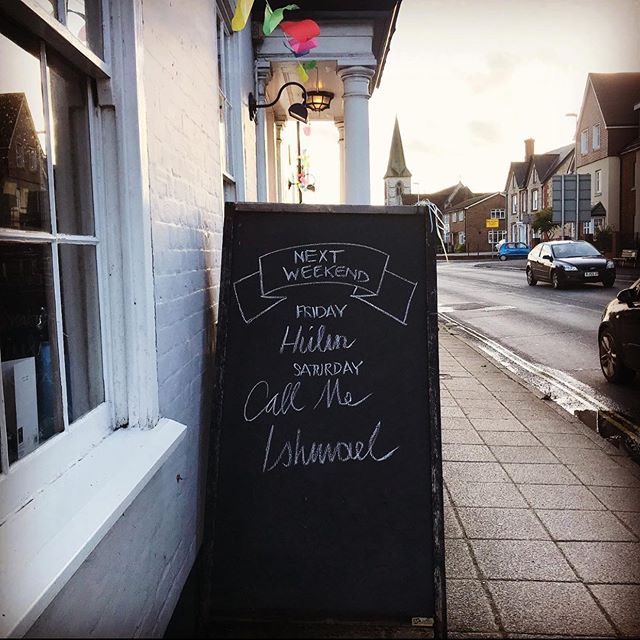 NEXT
WEEKEND
FRIDAY
SATURDAY
Call Me
Ishmael